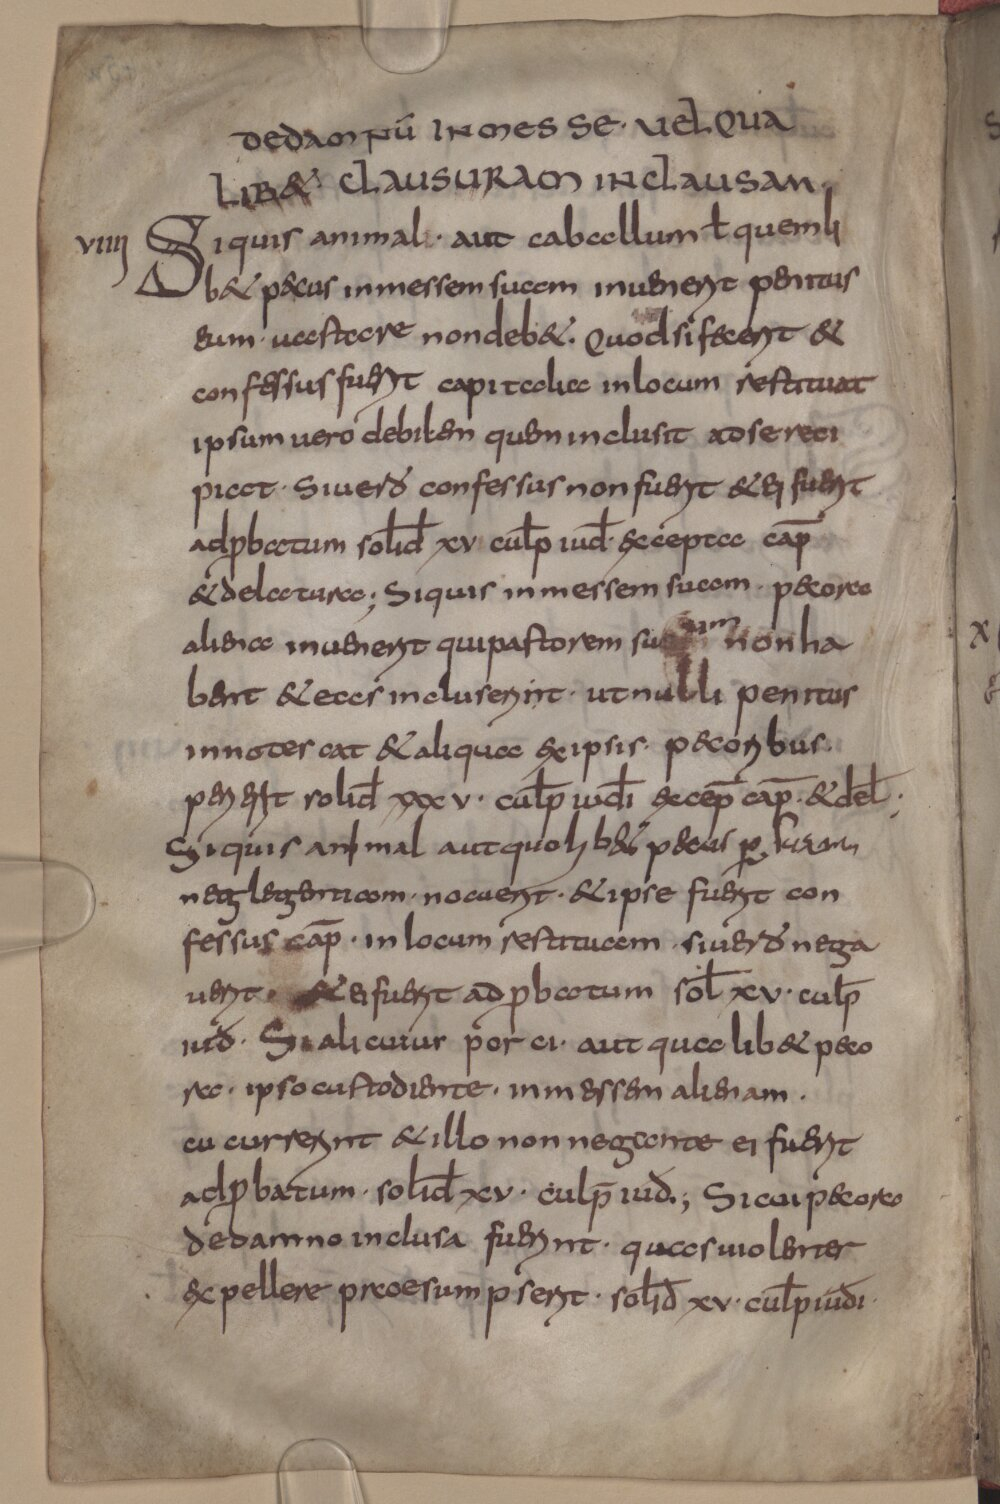 DEDAMNŪ IN MESSE· VEL QUA
LIB& CLAUSURAM INCLAUSAM·
VIIII Siquis animal· aut caballum ł quemli
b& pecus inmessem suam inuenerit penitus
eum· uastare nondeb&· Quodsi fecerit &
confessus fuerit capitalia inlocum restituat
ipsum uero debilem quem inclusit adse reci
piat· Siuerō confessus non fuerit & ei fuerit
adp̄batum solid̄ xv culp̄ iud̄· excepta cap̄
& delatura; Siquis inmessem suam· pecora
aliena inuenerit qui pastorem suum non ha
bent & eas incluserint· ut nulli penitus
innotescat & aliqua ex ipsis· pecoribus·
perierit solid̄ xxxv· culp̄ iud̄i excep̄ cap̄· & del̄·
Siquis animal aut quolib& pecus p̱ suam
neglegentiam· nocuerit· & ipse fuerit con
fessus cap̄· in locum restituam siuerō nega
uerit· & ei fuerit ad p̄batum sol̄ xv· culp̄
iud̄· Si alicuius porci· aut qua lib& peco
ra· ipso custodiente· in messem alienam·
cucurrerint & illo non negante ei fuerit
adp̄batum· solid̄ xv· culp̄ iud̄·; Sicui pecora
dedamno inclusa fuerint· quas uiolenter
expellere praesumpserit· solid̄ xv· culp̄ iud̄i·